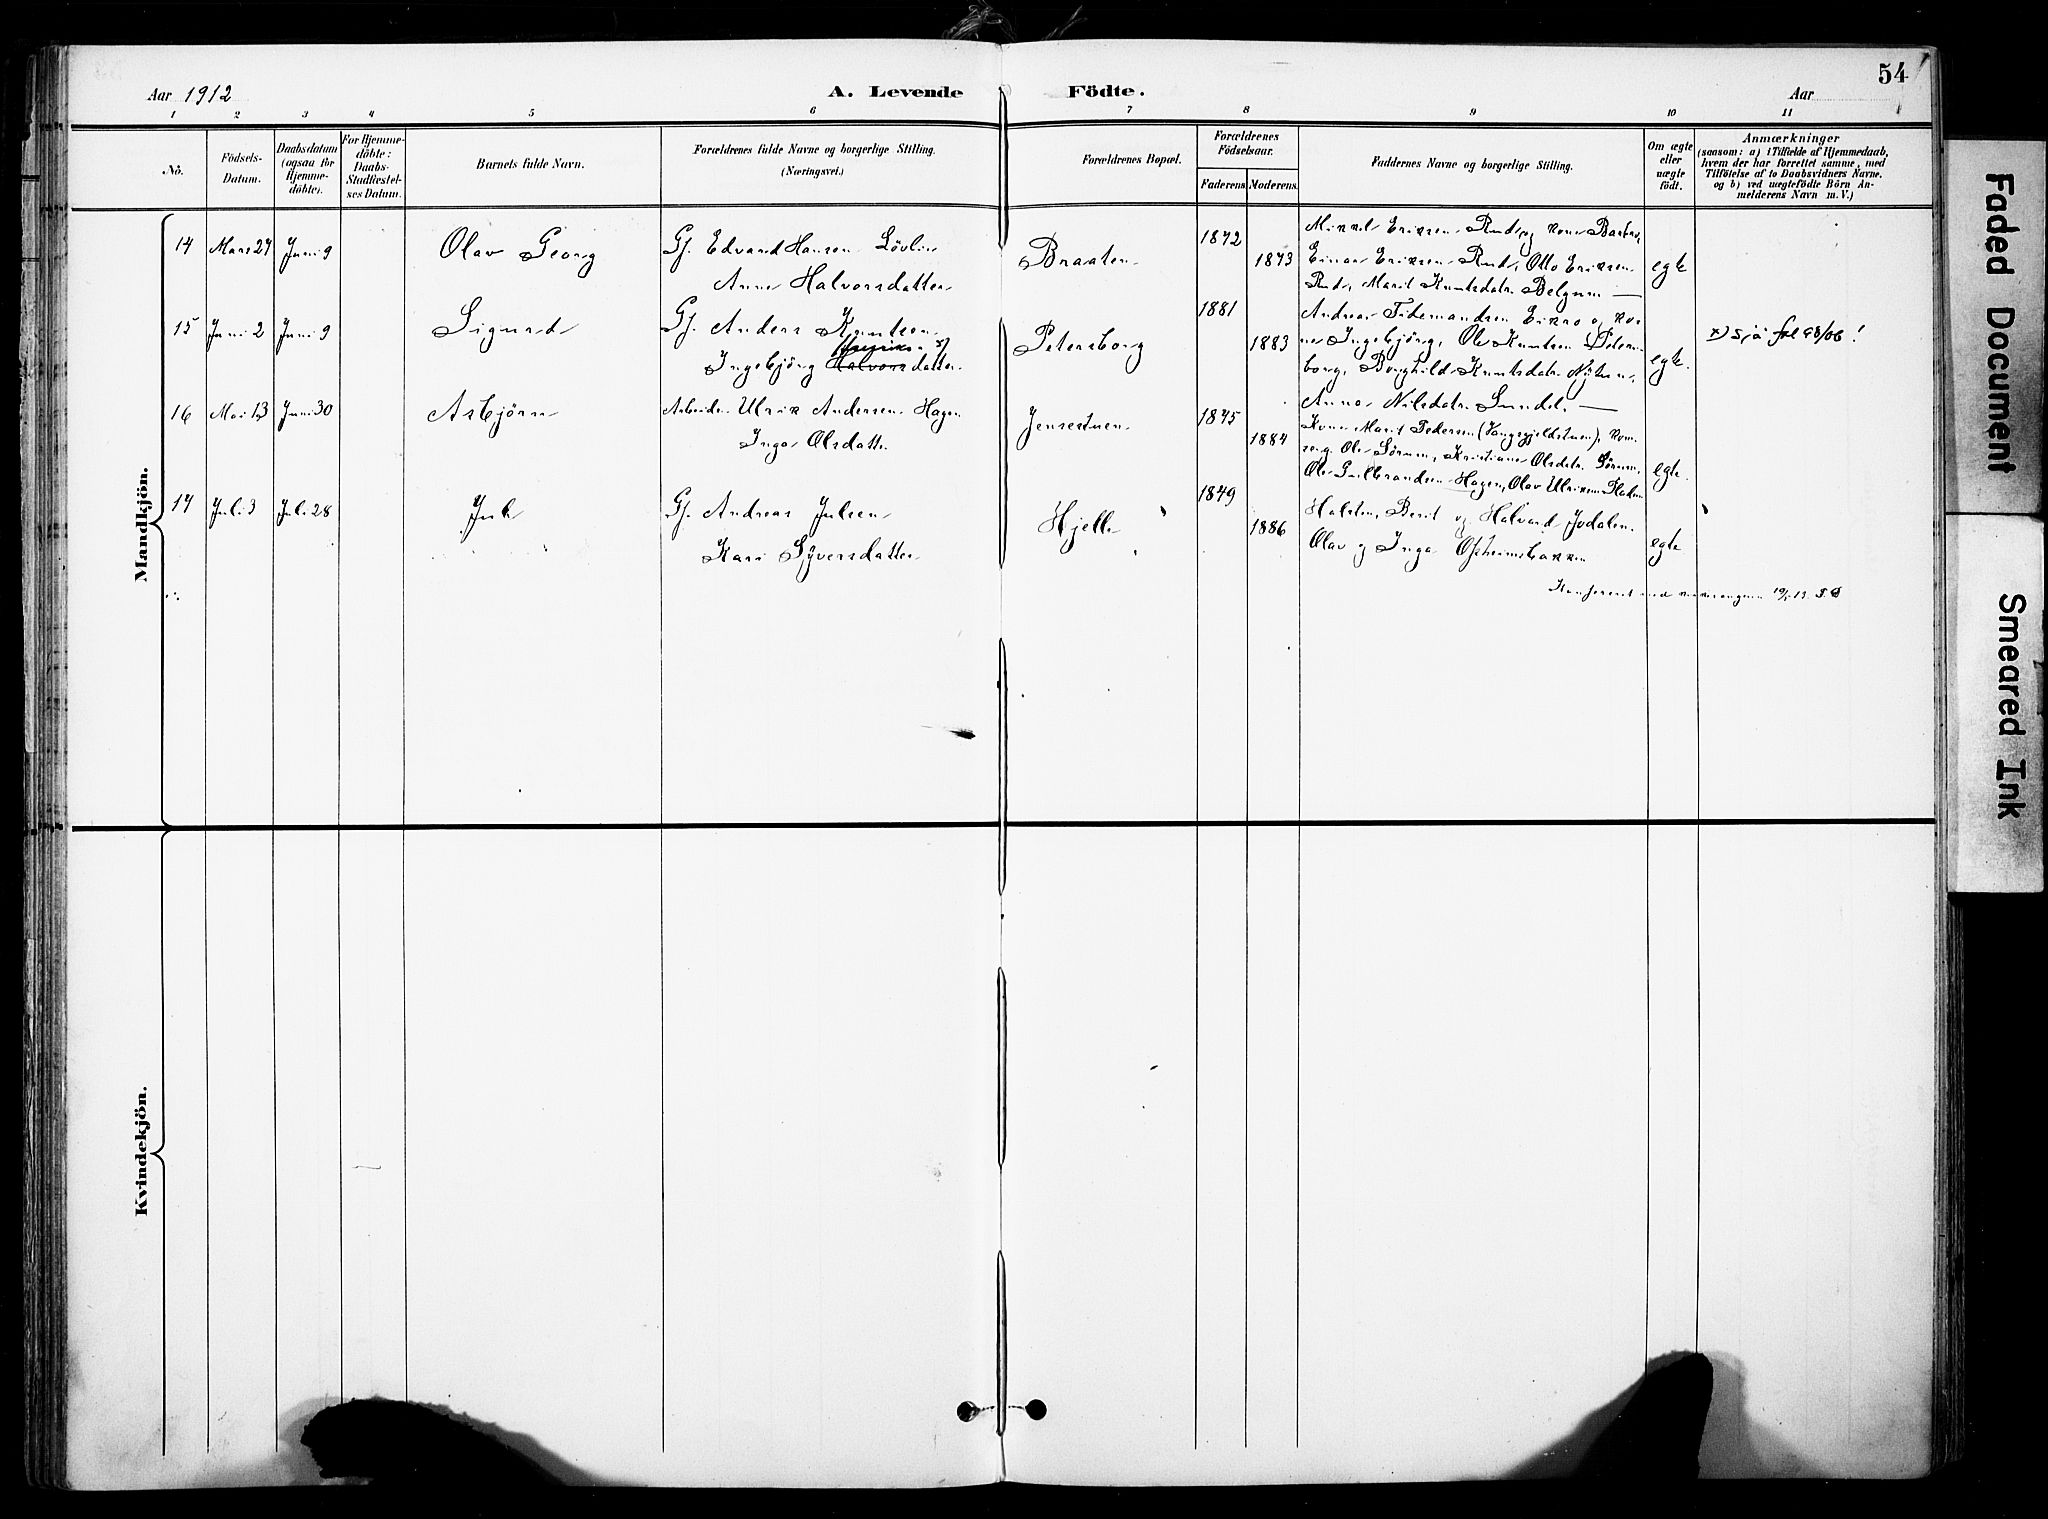 54
Aar 1912
A. Levende Födte.
Aar
1 2 3 4 5 6 7 8 9 10 11
No.
Födsels-Datum.
Daabsdatum (ogsaa for Hjemme-döbte).
For Hjemme-döbte: Daabs-Stadfæstel-ses Datum.
Barnets fulde Navn.
Forældrenes fulde Navne og borgerlige Stilling.
(Næringsvei.)
Forældrenes Bopæl.
Forældrenes Födselsaar.
Faderens. Moderens.
Faddernes Navne og borgerlige Stilling.
Om ægte eller uægte födt.
Anmærkninger
(saasom: a) i Tilfælde af Hjemmedaab,
hvem der har forrettet samme, med
Tilföielse af to Daabsvidners Navne.
og b) ved uægtefödte Börn An-
melderens Navn m. V.)
Mandkjön.
14 Mars 27 Juni 9 Olav Georg Gj. Edvard Hansen Lövlie
Anne Halvorsdatter
Braaten 1872 1873
Mikkel Eriksen Rud og kone Barbro,
Einar Eriksen Rud, Otto Eriksen
Rud, Marit Knutsdatr. Belgum
egte
15 Juni 2 Juni 9 Sigurd Gj. Anders Knutsen
Ingebjörg Halvorsdatter
Petersborg 1881 1883
Andreas Tidemandsen Eikro og ko-
ne Ingebjörg, Ole Knutsen Peters-
borg, Borghild Knutsdatr. Nytun,
Anna Nilsdatr. Sundet.
egte.
x) sjå fol 98/06!
16 Mai 13 Juni 30 Asbjörn Arbeider Ulrik Andersen Hagen
Inga Olsdatter
Jensestuen 1875 1884
Kone Marit Pedersen
Ole Sörum, Kristiane Olsdatr. Sörum,
Ole Gulbrandsen Hagen, Olav Ulriksen
egte.
17 Juli 3 Juli 28 Jul Gj. Andreas Julsen
Kari Syversdatter
Hjelle 1879 1886
Halsten, Berit og Halvard Jvdalen.
Olav og Inga Opheimsbakken
egte
Konfereret med 19/1 13.
Kvindekjön.
Faded Document
Smeared Ink